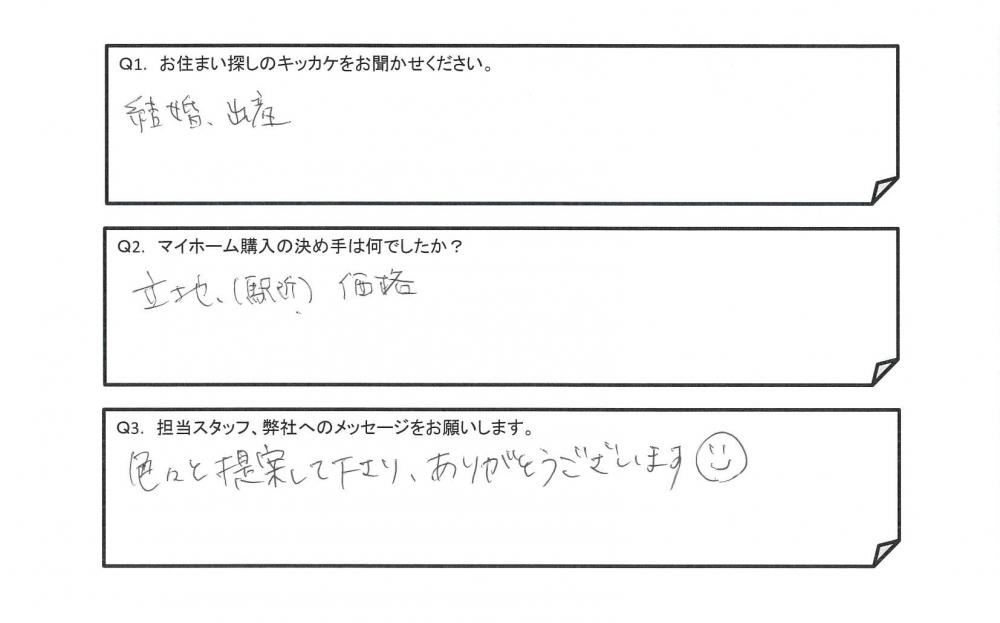 Q1. お住まい探しのキッカケをお聞かせください。
結婚、出産
Q2. マイホーム購入の決め手は何でしたか？
立地、(駅近) 価格
Q3. 担当スタッフ、弊社へのメッセージをお願いします。
色々と提案して下さり、ありがとうございます